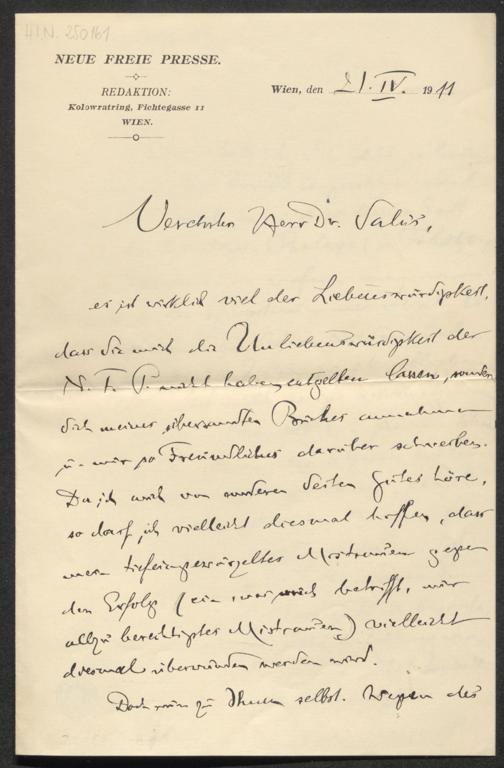 H.I.N. 250161
NEUE FREIE PRESSE.
REDAKTION:
Kolowratring, Fichtegasse 11
WIEN.
Wien, den 21. IV. 1911
Verehrter Herr Dr. Salus,
es ist wirklich viel der Liebenswürdigkeit,
dass Sie mich die Unliebenswürdigkeit der
N. F. P. nicht haben entgelten lassen, sondern
sich meines übersandten Buches annehmen
u. mir so Freundliches darüber schreiben.
Da ich auch von anderen Seiten Gutes höre,
so darf ich vielleicht diesmal hoffen, dass
mein tiefeingewurzeltes Mistrauen gegen
den Erfolg (ein, was mich betrifft, nur
allzu berechtigtes Mistrauen) vielleicht
diesmal überwunden werden wird.
Doch nun zu Ihnen selbst. Wegen des